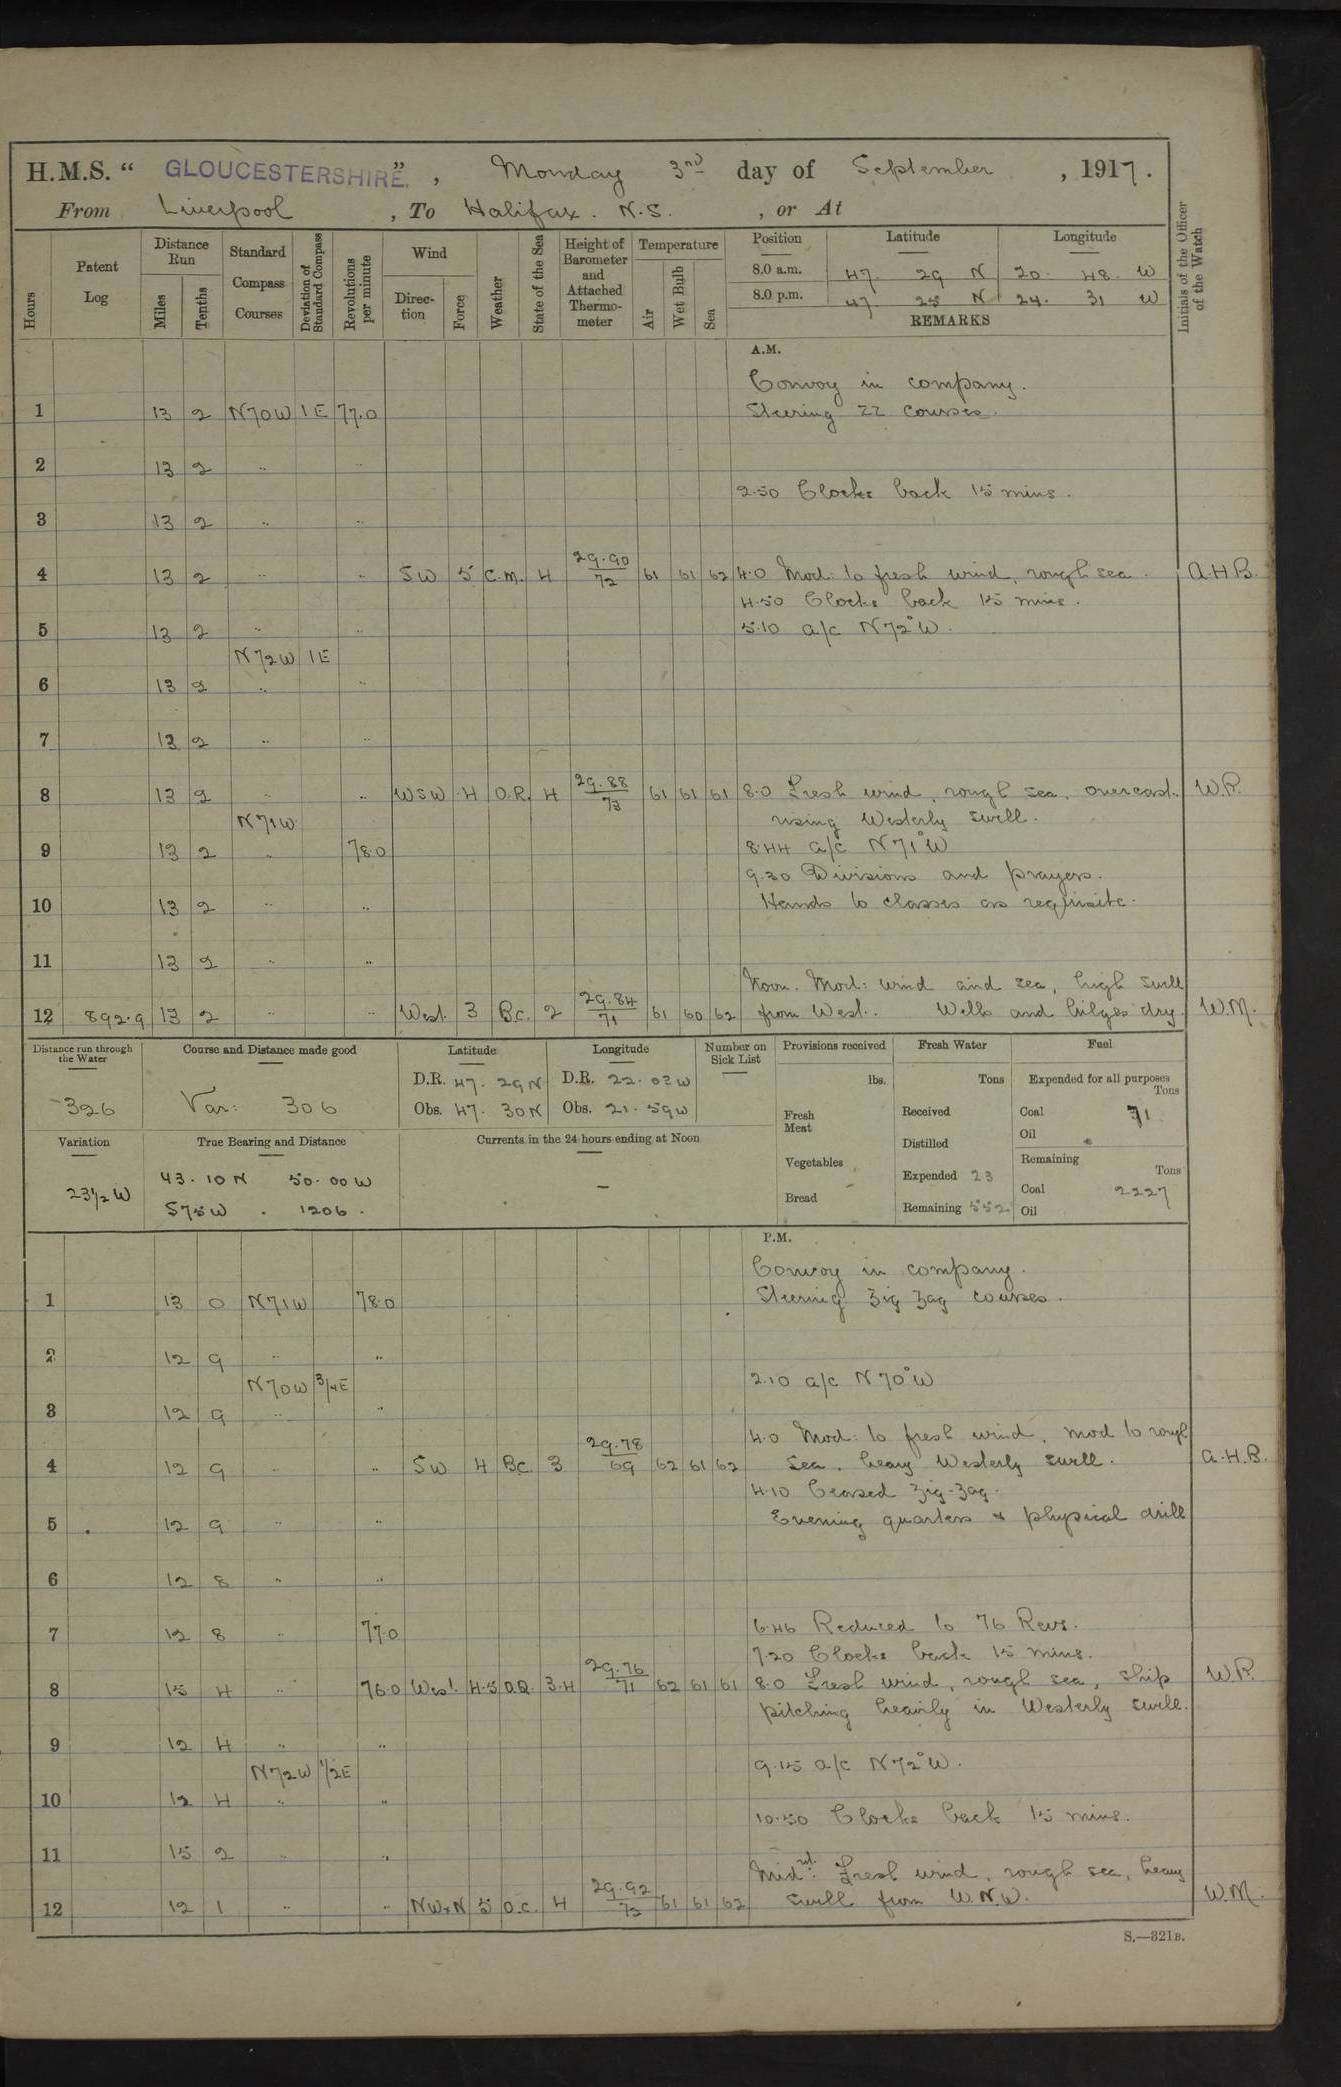 H.M.S. “ GLOUCESTERSHIRE. ”, Monday 3rd day of September, 1917.
From Liverpool, To Halifax. N.S., or At
Hours
Patent Log
Distance Run
Miles
Tenths
Standard Compass Courses
Deviation of Standard Compass
Revolutions per minute
Wind
Direction
Force
Weather
State of the Sea
Height of Barometer and Attached Thermometer
Temperature
Air
Wet Bulb
Sea
Position Latitude Longitude
8.0 a.m. 47. 29 N 20. 48. W
8.0 p.m. 47 25 N 24. 31 W
REMARKS
Initials of the Officer of the Watch
A.M.
Convoy in company.
1 13 2 N70W 1E 77.0 Steering ZZ courses.
2 13 2 " "
2.50 Clocks back 15 mins.
3 13 2 " "
4 13 2 " " SW 5 C.M. 4 29.90/72 61 61 62 4.0 Mod: to fresh wind, rough sea. A.H.B.
4.50 Clocks back 15 mins.
5 13 2 " " 5.10 a/c N72°W.
N72W 1E
6 13 2 " "
7 13 2 " "
8 13 2 " " WSW 4 O.R. 4 29.88/73 61 61 61 8.0 Fresh wind, rough sea, overcast. W.P.
N71W rising Westerly swell.
9 13 2 " 78.0 8.44 a/c N71°W
9.30 Divisions and prayers.
10 13 2 " " Hands to classes as requisite.
11 13 2 " "
Noon. Mod: wind and sea, high swell
12 892.9 13 2 " " West. 3 B.C. 2 29.84/71 61 60 62 from West. Wells and bilges dry. W.M.
Distance run through the Water
326
Course and Distance made good
Var: 306
Latitude
D.R. 47. 29N
Obs. 47. 30N
Longitude
D.R. 22. 03W
Obs. 21. 59W
Number on Sick List
Provisions received
lbs.
Fresh Meat
Vegetables
Bread
Fresh Water
Tons
Received
Distilled
Expended 23
Remaining 552
Fuel
Expended for all purposes
Tons
Coal 71
Oil
Remaining
Tons
Coal 2227
Oil
Variation
23½ W
True Bearing and Distance
43.10N 50.00W
S75W. 1206.
Currents in the 24 hours ending at Noon
—
P.M.
Convoy in company.
1 13 0 N71W 78.0 Steering zig zag courses.
2 12 9 " "
N70W 3/4E 2.10 a/c N70°W
3 12 9 " "
4.0 Mod: to fresh wind, mod to rough
4 12 9 " " SW 4 B.C. 3 29.78/69 62 61 62 sea, heavy Westerly swell. A.H.B.
4.10 Ceased zig-zag.
5 12 9 " " Evening quarters & physical drill
6 12 8 " "
7 12 8 " 77.0 6.46 Reduced to 76 Revs.
7.20 Clocks back 15 mins.
8 15 4 " 76.0 West. 4.5 O.Q. 3.4 29.76/71 62 61 61 8.0 Fresh wind, rough sea, ship W.P.
pitching heavily in Westerly swell.
9 12 4 " "
N72W 1/2E 9.15 a/c N72°W.
10 12 4 " "
10.50 Clocks back 15 mins.
11 15 2 " "
Midnt. Fresh wind, rough sea, heavy
12 12 1 " " NWxN 5 O.C. 4 29.92/72 61 61 62 swell from W.N.W. W.M.
S.—321B.